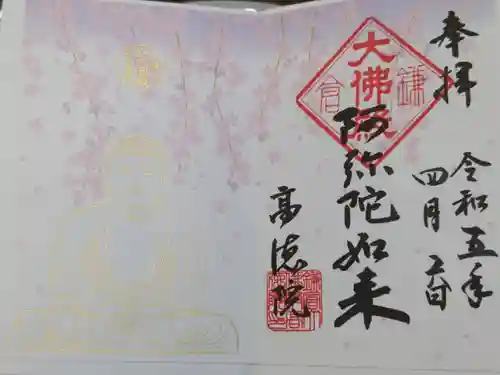 奉拝
令和五年
四月六日
大佛殿
鎌倉
阿弥陀如来
高徳院